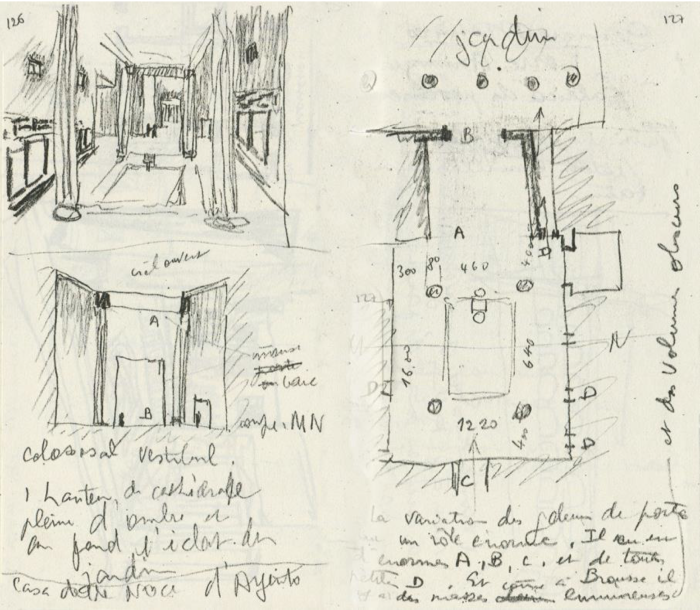 126
ciel ouvert
A
B
coupe MN
colossal vestibul.
1 hauteur de cathédrale
pleine d'ombre et
au fond l'éclat du
jardin
Casa delle Noce d'Argento
127
jardin
B
A
300 80 460 400
1600
640
N
D
1220
400
D
C
la variation des grandeurs de porte
un rôle énorme. Il en est
d'énormes A, B, C, et de toutes
petites D. Et comme à Brousse il
y a des masses lumineuses
et des volumes obscurs